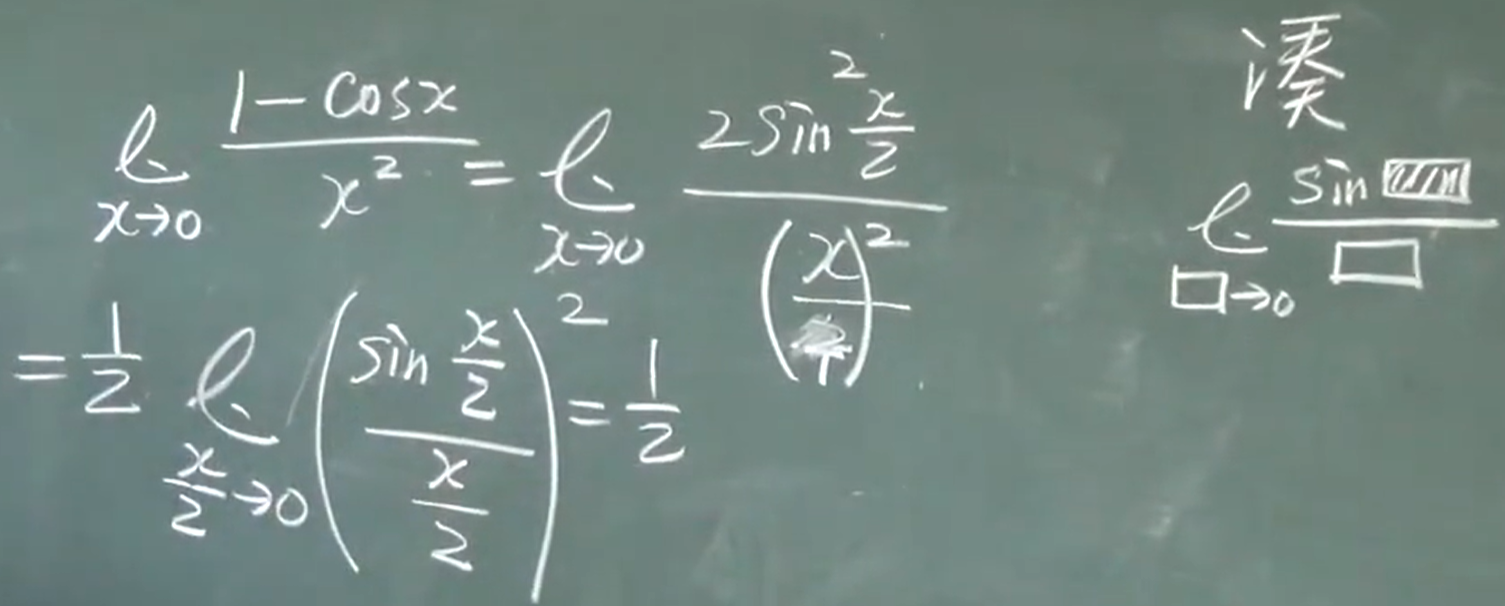 ℓ. x→0 (1 - cosx)/x² = ℓ. x→0 (2 sin² x/2)/(x/)²
= 1/2 ℓ. x/2→0 ((sin x/2)/(x/2))² = 1/2
凑
ℓ. □→0 sin▨/□